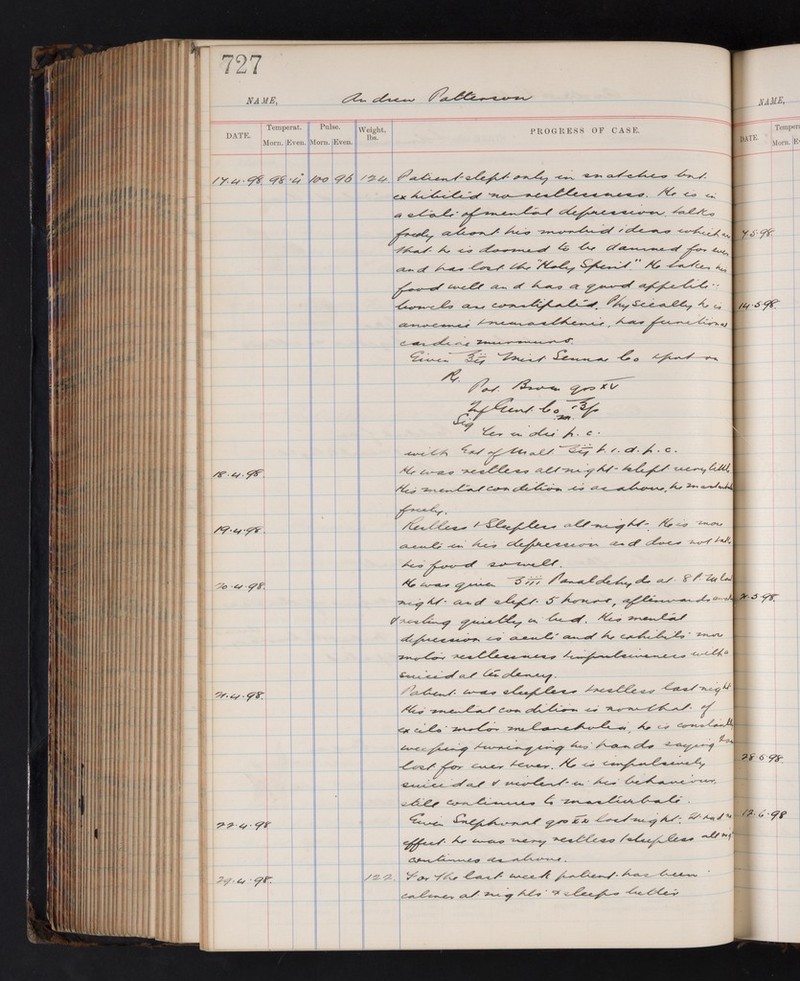 727
NAME, Andrew Patterson
DATE. Temperat. Pulse. Weight, lbs. PROGRESS OF CASE.
Morn. Even. Morn. Even.
17.4.98 98.4 100 96 124. Patient slept only in snatches but
exhibited no restlessness. He is in
a state of mental depression talks
freely about his morbid ideas which are
that he is doomed to be damned for ever
and has lost the "Holy Spirit." He takes his
food well and has a good appetite:
bowels are constipated. Physically he is
anaemic & neurasthenic, has functional
cardiac murmurs.
Given Mist Senna Co & put on
Rx.
Pot. Brom grs xv
Inf Gent. Co
Sig
Ter in die p.c.
with Ext of Malt t.i.d. p.c.
18.4.98. He was restless all night - slept very little
His mental condition is as above, he masturbates
freely.
19.4.98 Restless & Sleepless all night. He is more
acute in his depression and does not take
his food so well.
20.4.98. He was given Paraldehyde at 8 P.M. last
night and slept 5 hours, afterwards
resting quietly in bed. His mental
depression is acute and he exhibits more
motor restlessness & impulsiveness with a
suicidal tendency.
21.4.98. Patient was sleepless & restless last night
His mental condition is now that of
excito motor melancholia, he is constantly
weeping & wringing his hands saying
lost for ever & ever. He is impulsively
suicidal & violent in his behaviour.
still continues to masturbate.
22.4.98 Given Sulphonal grs xx last night. It had no
effect. he was very restless & sleepless all
continues as above.
29.4.98. 122. For the last week patient has been
calmer at nights & sleeps better
NAME,
DATE. Temper
Morn.
7.5.98.
14.5.98.
21.5.98.
28.5.98.
12.6.98